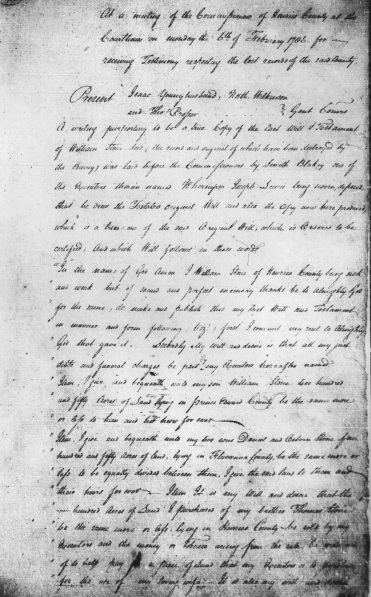 At a meeting of the Commissioners of Henrico County at the
Courthouse on Monday the 6th of February 1783 for
receiving Testimony respecting the lost records of the said County
Present Isaac Younghusband, Nath. Wilkinson
and Thos. Prosser } Gent Comrs
A writing purporting to be a true Copy of the last Will & Testament
of William Stone decd, the record and original of which have been destroyed by
the Enemy was laid before the Commissioners by Smith Blakey one of
the Executors therein named Whereupon Joseph Lewis being sworn, deposed
that he drew the Testators original Will and also the copy now here produced
which is a true one of the said Original Will, which is Ordered to be
certified, and which Will follows in these words
In the name of God Amen I William Stone of Henrico County being sick
and weak but of sound and perfect memory thanks be to Almighty God
for the same, do make and publish this my last Will and Testament
in manner and form following, Viz, first I commit my soul to Almighty
God that gave it. Secondly My will and desire is that all my just
debts and funeral charges be paid my Executors hereafter named
Item, I give and bequeath unto my son William Stone two hundred
and fifty Acres of Land lying in Prince Edward County be the same more
or less to him and his heirs for ever
Item, I give and bequeath unto my two sons Daniel and Asborn Stone
hundred and fifty Acres of land, lying in Fluvanna County, be the same more or
less to be equally divided between them, I give the said land to them and
their heirs for ever Item It is my Will and desire that the
hundred acres of Land I purchased of my brother Thomas Stone
be the same more or less, lying in Henrico County be sold by my
Executors and the money or Tobacco arising from the sale be
of to help pay for a piece of Land that my Executors is to purchase
for the use of my loving wife It is also my will and desire